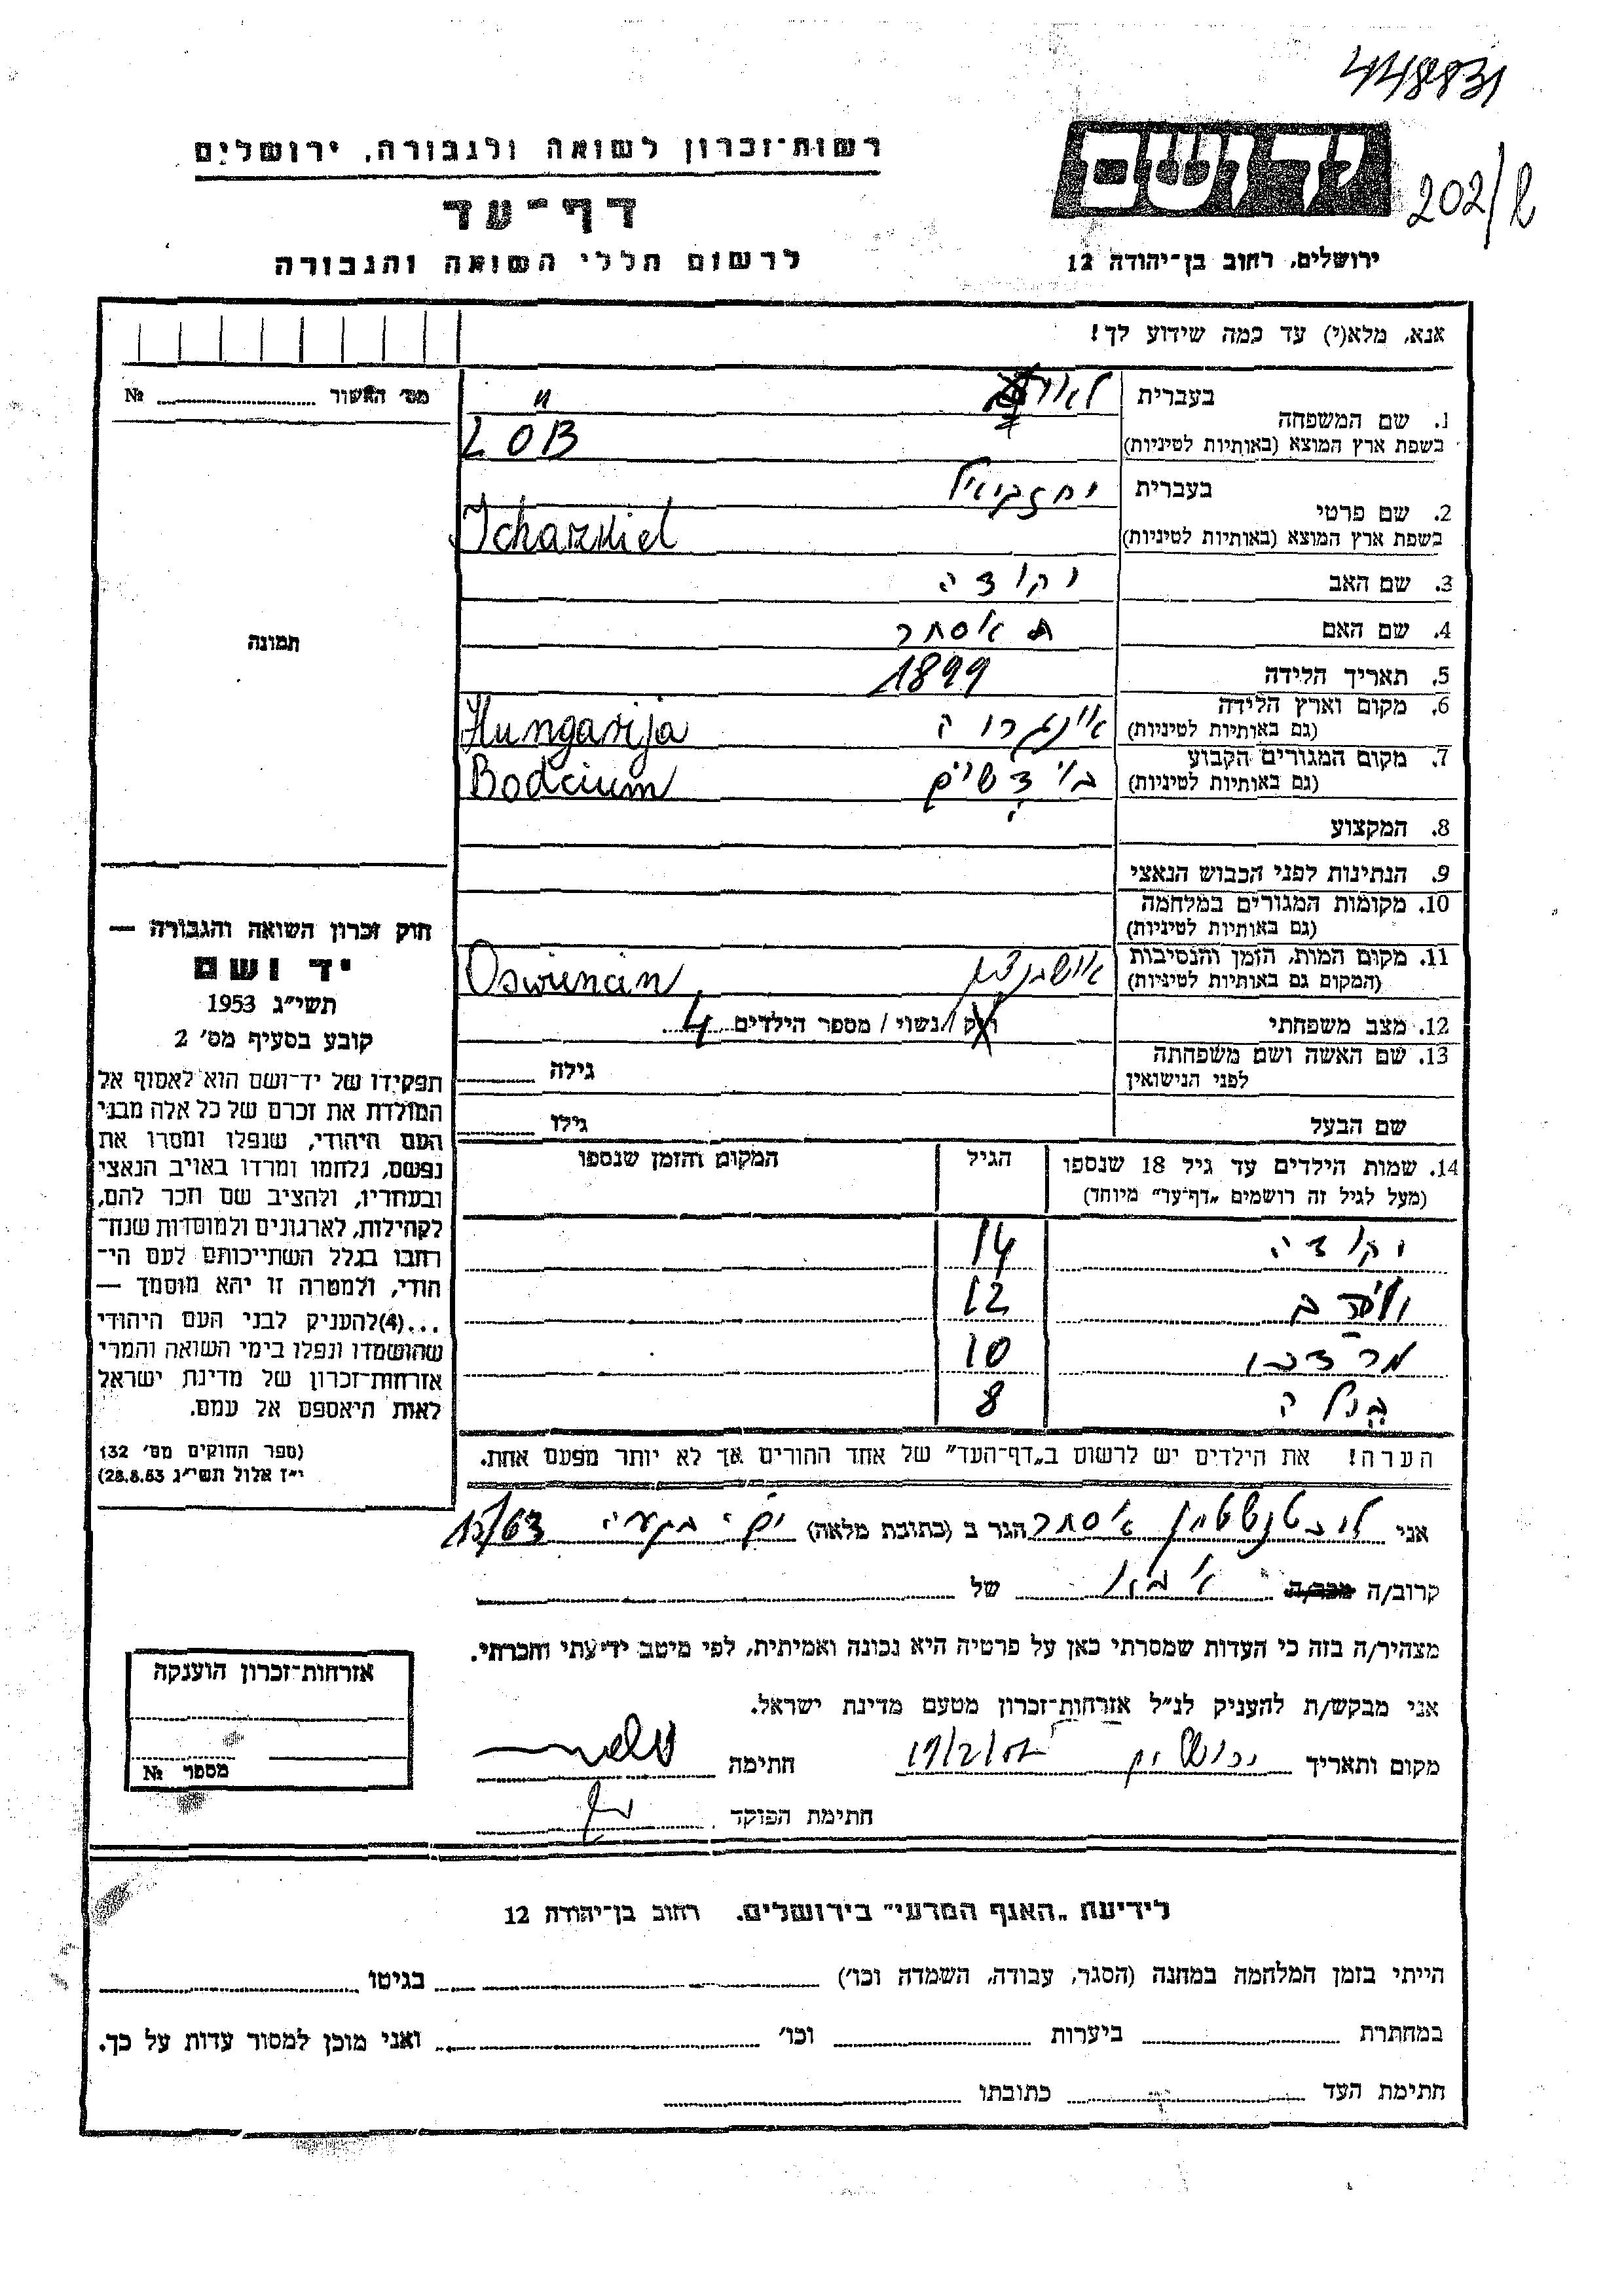 448831
רשות־זכרון לשואה ולגבורה, ירושלים
יד ושם
202/
דף־עד
לרשום חללי השואה והגבורה
ירושלים, רחוב בן־יהודה 12
אנא, מלא(י) עד כמה שידוע לך!
מס׳ האשור № 
1. שם המשפחה
בעברית
בשפת ארץ המוצא (באותיות לטיניות) LÖB
2. שם פרטי
בעברית יחזקיאל
בשפת ארץ המוצא (באותיות לטיניות) Jchazkiel
3. שם האב יהודה
4. שם האם אסתר
5. תאריך הלידה 1899
6. מקום וארץ הלידה
(גם באותיות לטיניות) Hungarija
7. מקום המגורים הקבוע
(גם באותיות לטיניות) Bodcium
8. המקצוע
9. הנתינות לפני הכבוש הנאצי
10. מקומות המגורים במלחמה
(גם באותיות לטיניות)
11. מקום המות, הזמן והנסיבות
(המקום גם באותיות לטיניות) Oswiencin
12. מצב משפחתי רוק / נשוי / מספר הילדים 4
13. שם האשה ושם משפחתה
לפני הנישואין גילה
שם הבעל גילו
14. שמות הילדים עד גיל 18 שנספו
(מעל לגיל זה רושמים „דף־עד״ מיוחד)
הגיל
המקום והזמן שנספו
יהודה 14
12
מרדכי 10
8
הערה! את הילדים יש לרשום ב„דף־העד״ של אחד ההורים אך לא יותר מפעם אחת.
תמונה
חוק זכרון השואה והגבורה —
יד ושם
תשי״ג 1953
קובע בסעיף מס׳ 2
תפקידו של יד־ושם הוא לאסוף אל
המולדת את זכרם של כל אלה מבני
העם היהודי, שנפלו ומסרו את
נפשם, נלחמו ומרדו באויב הנאצי
ובעוזריו, ולהציב שם וזכר להם,
לקהילות, לארגונים ולמוסדות שנח־
רחבו בגלל השתייכותם לעם הי־
הודי, ולמטרה זו יהא מוסמך —
...(4)להעניק לבני העם היהודי
שהושמדו ונפלו בימי השואה והמרי
אזרחות־זכרון של מדינת ישראל
לאות היאספם אל עמם.
(ספר החוקים מס׳ 132
י״ז אלול תשי״ג 28.8.53)
אני ליכטנשטיין אסתר הגר ב (כתובת מלאה)
קרוב/ה מכר/ה של
מצהיר/ה בזה כי העדות שמסרתי כאן על פרטיה היא נכונה ואמיתית, לפי מיטב ידיעתי והכרתי.
אני מבקש/ת להעניק לנ״ל אזרחות־זכרון מטעם מדינת ישראל.
מקום ותאריך ירושלים חתימה
חתימת הפוקד
אזרחות־זכרון הוענקה
מספר №
לידיעת „האגף המדעי״ בירושלים, רחוב בן־יהודה 12
הייתי בזמן המלחמה במחנה (הסגר, עבודה, השמדה וכו׳) בגיטו
במחתרת ביערות וכו׳ ואני מוכן למסור עדות על כך.
חתימת העד כתובתו